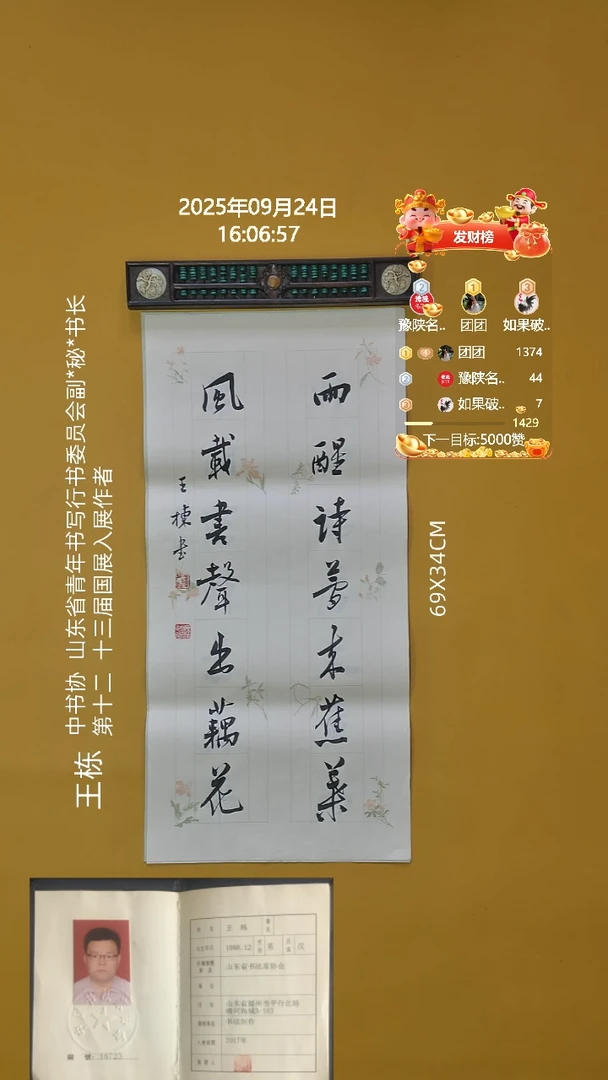 2025年09月24日
16:06:57
发财榜
豫陕名..
团团
如果破..
团团 1374
豫陕名.. 44
如果破.. 7
1429
下一目标:5000赞
雨醒詩夢来蕉葉
風載書聲出藕花
王棟書
69X34CM
王栋 中书协 山东省青年书写行书委员会副*秘*书长
第十二 十三届国展入展作者
王栋
1988.12
男
汉
山东省书法家协会
2017年